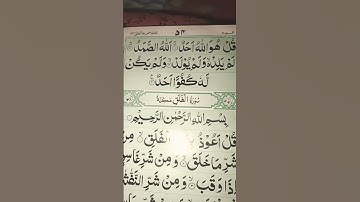 ٥٤
قُلْ هُوَ اللّٰهُ اَحَدٌ ۚ اَللّٰهُ الصَّمَدُ ۚ
لَمْ يَلِدْ ۙ وَلَمْ يُوْلَدْ ۙ وَلَمْ يَكُنْ
لَّهٗ كُفُوًا اَحَدٌ
سُوْرَةُ الْفَلَقِ مَكِّيَّةٌ
بِسْمِ اللّٰهِ الرَّحْمٰنِ الرَّحِيْمِ
قُلْ اَعُوْذُ الْفَلَقِ ۙ مِنْ
شَرِّ مَا خَلَقَ ۙ وَمِنْ شَرِّ غَاسِ
اِذَا وَقَبَ ۙ وَمِنْ شَرِّ النَّفّٰثٰ